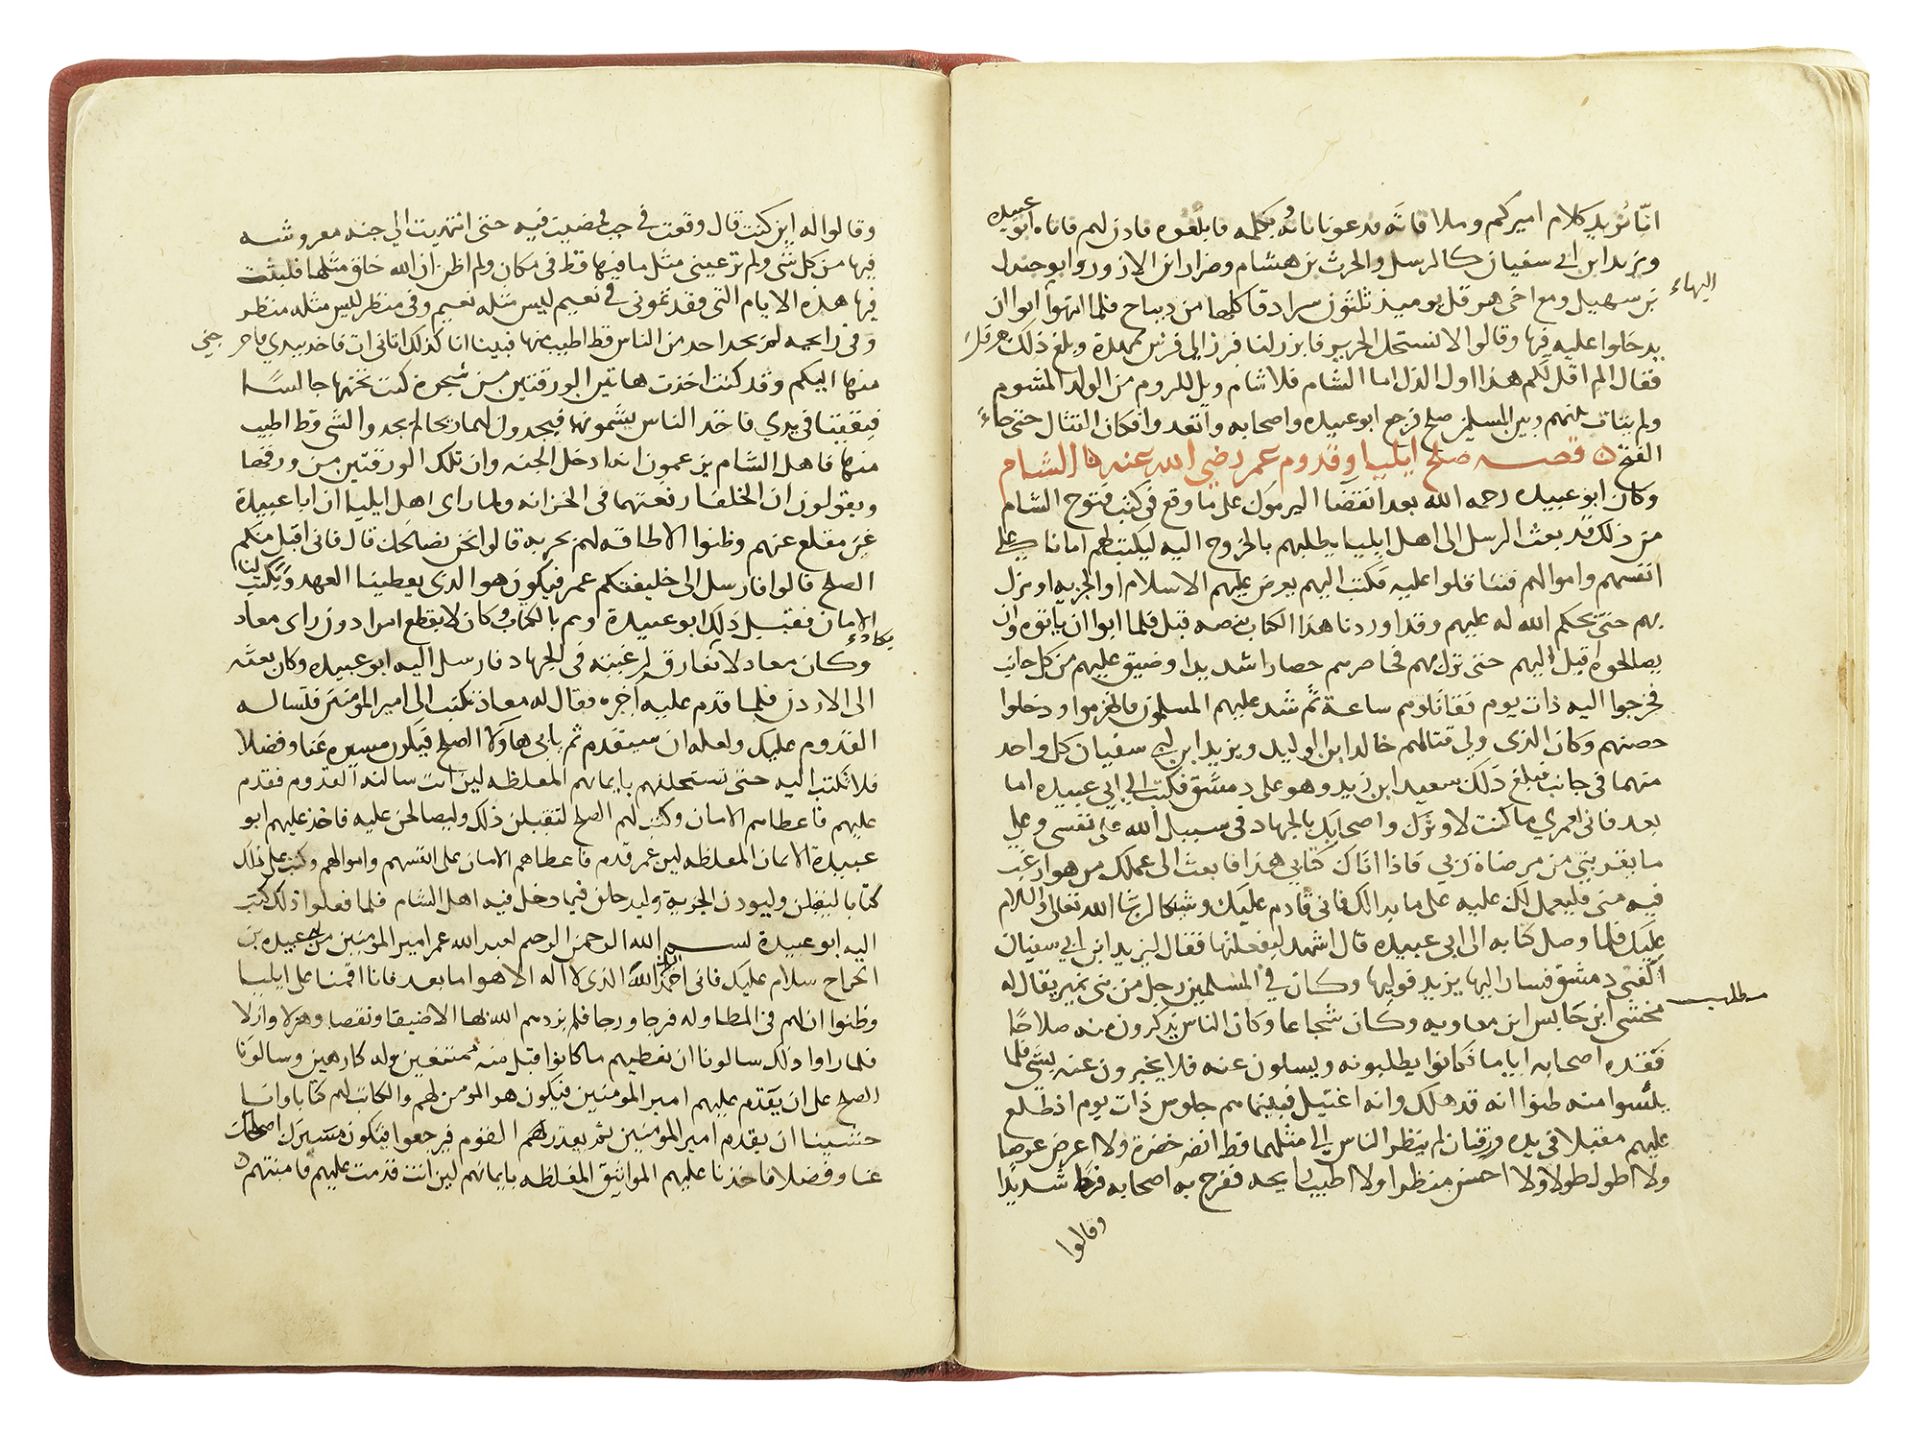 انا نريد كلام اميركم وملاقاته فدعونا ناته ونكلمه فابلغوه فاذن لهم فاتاه ابو عبيده
ويزيد ابن ابي سفيان كالرسل والحرث بن هشام وضرار ابن الازور وابو جندل
بن سهيل ومع اخي هرقل يوميذ ثلثون سرادقا كلها من ديباح فلما انتهوا اليها ابوا ان
يدخلوا عليه فيها وقالوا لا نستحل الحرير فابرز لنا فبرز الي فرش ممهدة وبلغ ذلك هرقل
فقال الم اقل لكم هذا اول الذل اما الشام فلا شام وويل للروم من الولد المشوم
ولم يتات بينهم وبين المسلمين صلح فرجع ابو عبيده واصحابه واتعدوا فكان القتال حتى جاء
الفتح ٥ قصه صلح ايليا وقدوم عمر رضي الله عنه الشام
وكان ابو عبيده رحمه الله بعد انقضا اليرموك على ما وقع في كتب فتوح الشام
من ذلك قد بعث الرسل الى اهل ايليا يطلبهم بالخروج اليه ليكتب لهم امانا على
انفسهم واموالهم فتثاقلوا عليه فكتب اليهم يعرض عليهم الاسلام او الجزيه او نزل
بهم حتى يحكم الله له عليهم وقد اوردنا هذا الكتاب بنصه قبل فلما ابوا ان ياتوه وان
يصالحوه اقبل اليهم حتى نزل بهم فحاصرهم حصارا شديدا وضيق عليهم من كل جانب
فخرجوا اليه ذات يوم فقاتلوهم ساعة ثم شد عليهم المسلمون فانهزموا ودخلوا
حصنهم وكان الذي ولي قتالهم خالد ابن الوليد ويزيد ابن ابي سفيان كل واحد
منهما في جانب فبلغ ذلك سعيد ابن زيد وهو على دمشق فكتب الي ابي عبيده اما
بعد فاني لعمري ما كنت لاوثرك واصحابك بالجهاد في سبيل الله على نفسي وعلى
ما يقربني من مرضاة ربي فاذا اتاك كتابي هذا فابعث الى عملك من هو ارغب
فيه مني فليعمل لك عليه على ما بدا لك فاني قادم عليك وشيكا ان شا الله تعالى والسلام
عليك فلما وصل كتابه الى ابي عبيده قال اشهد ليفعلنها فقال ليزيد ابن ابي سفيان
اكفني دمشق فسار اليها يزيد فوليها وكان في المسلمين رجل من بني نمير يقال له
مطلب مخشي ابن حابس ابن معاويه وكان شجاعا وكان الناس يذكرون منه صلاحا
ففقده اصحابه اياما فكانوا يطلبونه ويسلون عنه فلا يخبرون عنه بشي فلما
يئسوا منه ظنوا انه قد هلك وانه اغتيل فبينما هم جلوس ذات يوم اذ طلع
عليهم مقبلا في يده ورقتان لم ينظر الناس الى مثلهما قط انضر خضرة ولا اعرض عرضا
ولا اطول طولا ولا احسن منظرا ولا اطيب ريحه ففرح به اصحابه فرحا شديدا
وقالوا
وقالوا له اين كنت قال وقعت في جب فمضيت فيه حتى انتهيت الي جنه معروشه
فيها من كل شي ولم تر عيني مثل ما فيها قط في مكان ولم اظن ان الله خلق مثلها فلبثت
فيها هذه الايام التي فقدتموني في نعيم ليس مثله نعيم وفي منظر ليس مثله منظر
وفي رايحه لم يجد احد من الناس قط اطيب منها فبينا انا كذلك اتاني ات فاخذ بيدي فاخرجني
منها اليكم وقد كنت اخذت هاتين الورقتين من شجرة كنت تحتها جالسا
فبقيتا في يدي فاخذ الناس يشمونها فيجدون لهما ريحا لم يجدوا لشي قط اطيب
منها فاهل الشام يزعمون انه ادخل الجنه وان تلك الورقتين من ورقها
ويقولون ان الخلفا رفعتهما في الخزانه ولما راى اهل ايليا ان ابا عبيدة
غير مقلع عنهم وظنوا الا طاقه لهم بحربه قالوا نحن نصالحك قال فاني اقبل منكم
الصلح قالوا فارسل الى خليفتكم عمر فيكون هو الذي يعطينا العهد ويكتب لنا
الامان فقبل ذلك ابو عبيدة وهم بالكتاب وكان لا يكاد يقطع امرا دون راى معاد
وكان معاد لا يفارقه لرغبته في الجهاد فارسل اليه ابو عبيده وكان بعثه
الى الاردن فلما قدم عليه اخبره فقال له معاذ تكتب الى امير المومنين فتساله
القدوم عليك ولعله ان سيقدم ثم يابي هاولا الصلح فيكون مسيره عنا وفضلا
فلا تكتب اليه حتى تستحلفهم بايمانهم المغلظه لين انت سالته القدوم فقدم
عليهم فاعطاهم الامان وكتب لهم الصلح لتقبلن ذلك وليصالحن عليه فاخذ عليهم ابو
عبيدة الايمان المغلظه لين عمر قدم فاعطاهم الامان على انفسهم واموالهم وكتب على ذلك
كتابا ليقبلن وليودن الجزيه وليدخلن فيما دخل فيه اهل الشام فلما فعلوا ذلك كتب
اليه ابو عبيدة بسم الله الرحمن الرحيم لعبد الله عمر امير المومنين من ابي عبيده بن
الجراح سلام عليك فاني احمد اليك الله الذي لا اله الا هو اما بعد فانا اقمنا على ايليا
وظنوا ان لهم في المطاوله فرجا ورجا فلم يزدهم الله بها الا ضيقا ونقصا وهزلا وازلا
فلما راوا ذلك سالونا ان نعطيهم ما كانوا قبل منه ممتنعين وله كارهين وسالونا
الصلح على ان يقدم عليهم امير المومنين فيكون هو المومن لهم والكاتب لهم كتابا وانا
خشينا ان يقدم امير المومنين ثم يغدر القوم فيرجعوا فيكون مسيرك اصلحك
عنا وفضلا فاخذنا عليهم المواثيق المغلظه بايمانهم لين انت قدمت عليهم فامنتهم ٥